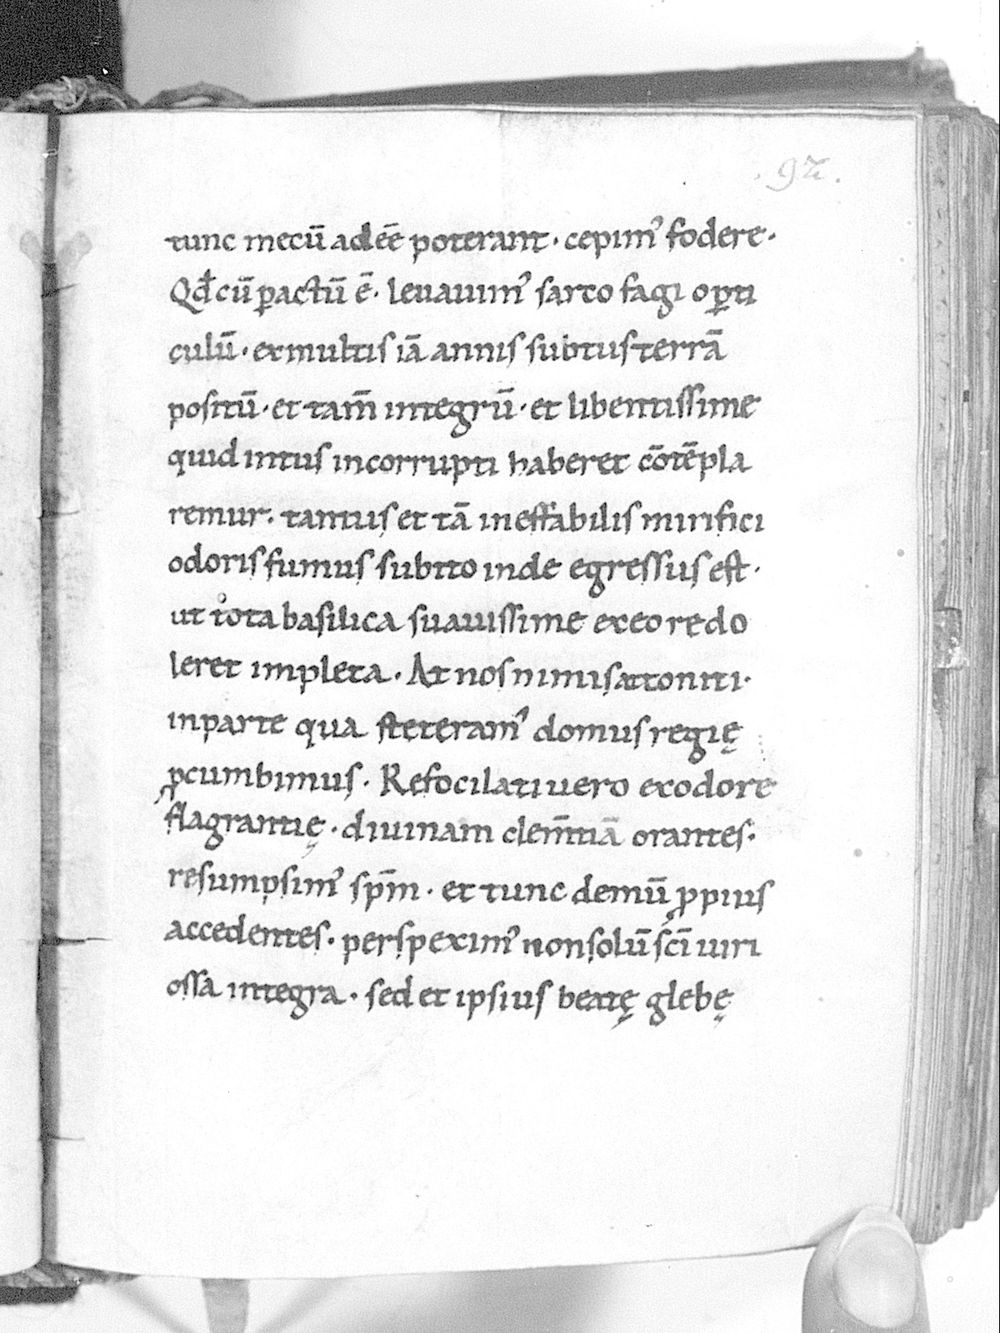 .92.
tunc mecū adeē poterant · cepim᾽ fodere ·
Qđ cū ꝑactū ē · leuauim᾽ sarcofagi oꝑti
culū · ex multis iā annis subtus terrā
positū · et tam̄ integrū · et libentissime
quid intus incorrupti haberet cōtēpla
remur · tantus et tā ineffabilis mirifici
odoris fumus subito inde egressus est ·
ut tota basilica suauissime ex eo redo
leret impleta · At nos nimis attoniti ·
in parte qua steteram᾽ domus regię
ꝓcumbimus · Refocilati uero ex odore
flagrantię · diuinam clem̄tiā orantes ·
resumpsim᾽ sp̄m · et tunc demū ꝓpius
accedentes · perspexim᾽ non solū sc̄i uiri
ossa integra · sed et ipsius beatę glebę